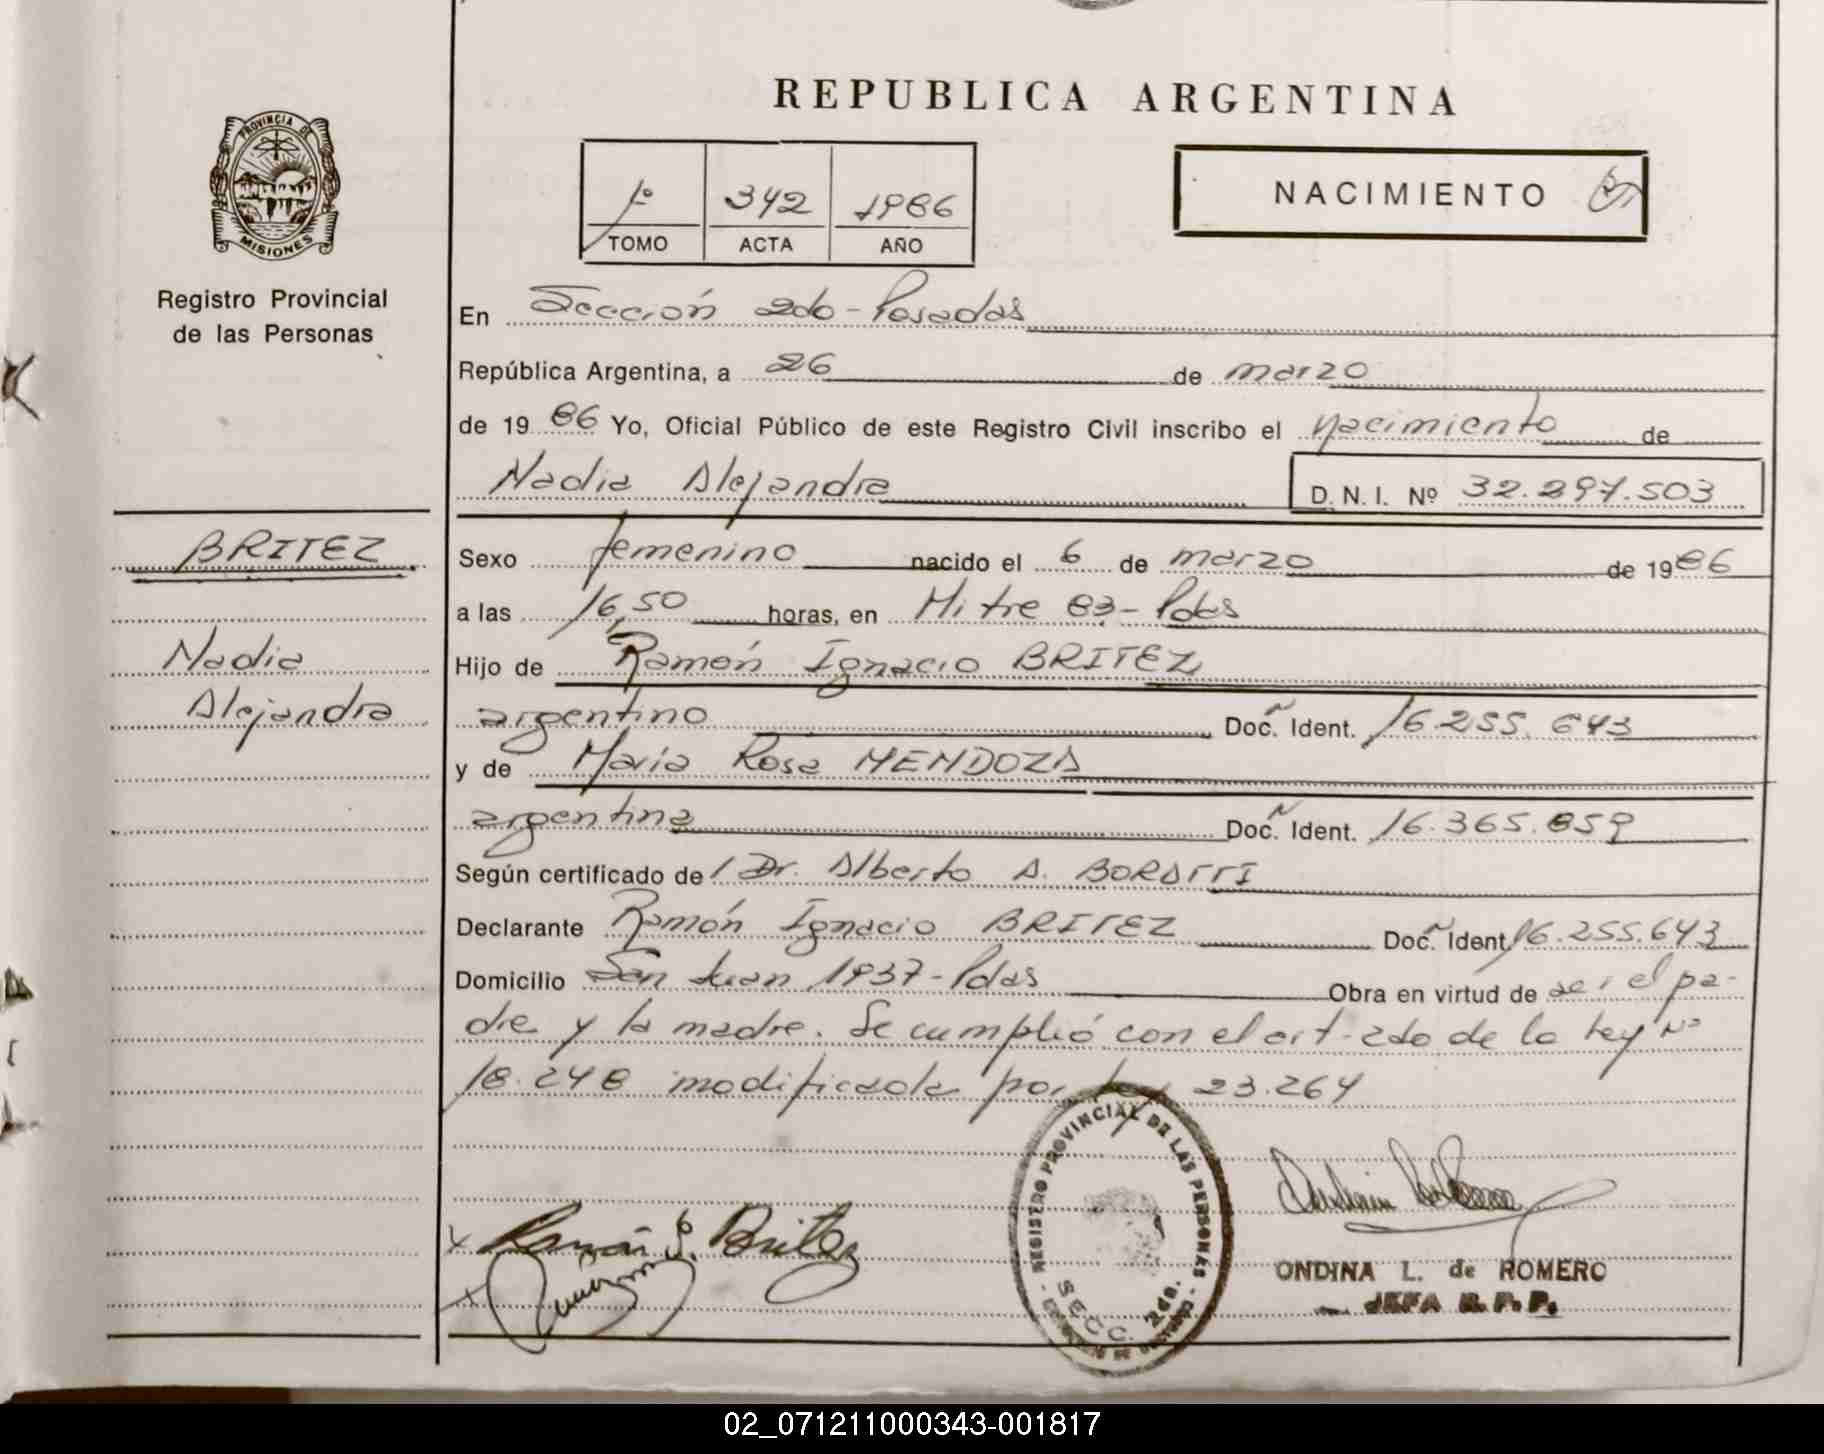 REPUBLICA ARGENTINA
PROVINCIA DE
MISIONES
Registro Provincial
de las Personas
1º 342 1986
TOMO ACTA AÑO
NACIMIENTO
En Sección 2do - Posadas
República Argentina, a 26 de marzo
de 1986 Yo, Oficial Público de este Registro Civil inscribo el nacimiento de
Nadia Alejandra D. N. I. Nº 32.297.503
BRITEZ
Nadia
Alejandra
Sexo femenino nacido el 6 de marzo de 1986
a las 16,50 horas, en Mitre 83 - Pdas
Hijo de Ramón Ignacio BRITEZ
argentino Doc. Ident. 16.255.643
y de María Rosa MENDOZA
argentina Doc. Ident. 16.365.859
Según certificado de l Dr. Alberto A. BORATTI
Declarante Ramón Ignacio BRITEZ Doc. Ident. 16.255.643
Domicilio San Juan 1937 - Pdas Obra en virtud de ser el pa-
dre y la madre. Se cumplió con el art. 2do de la Ley Nº
18.248 modificada por Ley 23.264
REGISTRO PROVINCIAL DE LAS PERSONAS
SECC. 2da.
x Ramón I. Britez
x
ONDINA L. de ROMERO
JEFA R. P. P.
02_071211000343-001817